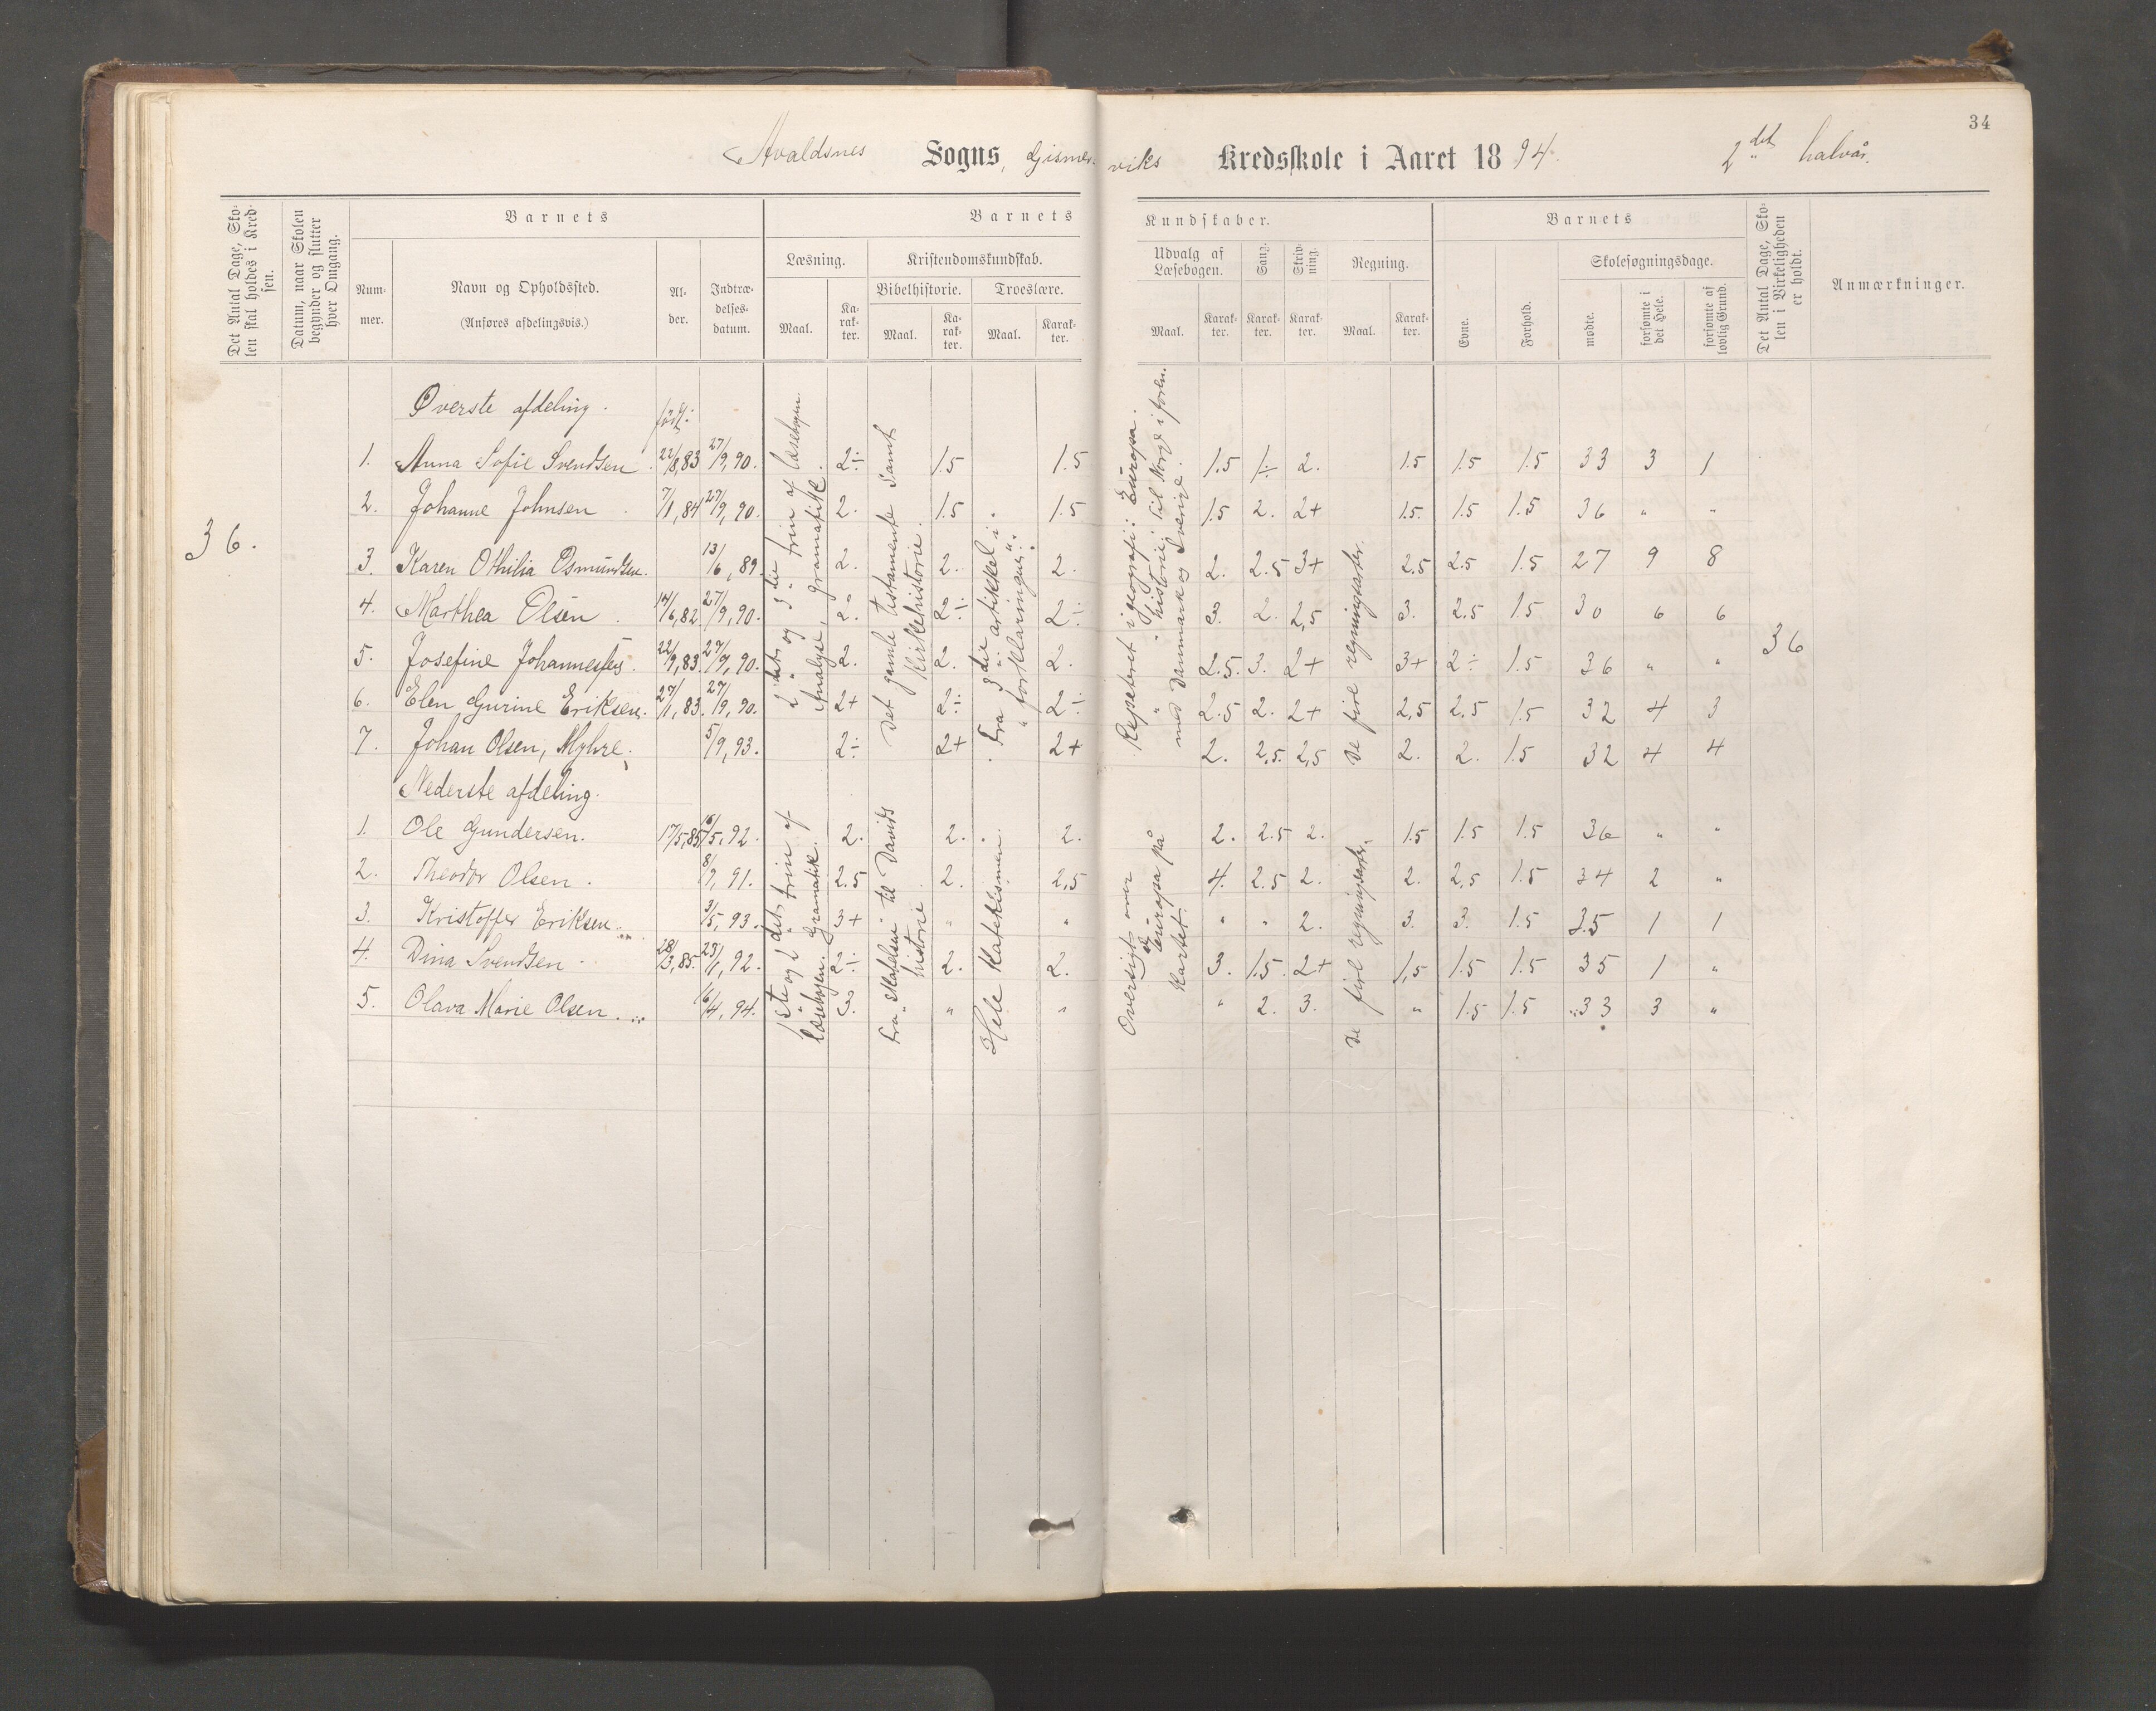 34
Avaldsnes Sogns, Gismerviks Kredsskole i Aaret 1894. 2det halvår.
Det Antal Dage, Skolen skal holdes i Kredsen.
Datum, naar Skolen begynder og slutter hver Omgang.
Barnets
Nummer.
Navn og Opholdssted.
(Anføres afdelingsvis.)
Alder.
Indtrædelsesdatum.
Barnets Kundskaber.
Læsning.
Maal.
Karakter.
Kristendomskundskab.
Bibelhistorie.
Maal.
Karakter.
Troeslære.
Maal.
Karakter.
Udvalg af Læsebogen.
Maal.
Karakter.
Sang.
Karakter.
Skrivning.
Karakter.
Regning.
Maal.
Karakter.
Barnets
Evne.
Forhold.
Skolesøgningsdage.
mødte.
forsømte i det Hele.
forsømte af lovlig Grund.
Det Antal Dage, Skolen i Virkeligheden er holdt.
Anmærkninger.
36.
Øverste afdeling. født:
1. Anna Sofie Svendsen. 22/8,83 27/9,90. 2÷ 1.5 1.5 1.5 1÷ 2. 1.5 1.5 1.5 33 3 1
2. Johanne Johnsen. 7/1,84 27/9,90. 2. 1.5 1.5 1.5 2. 2+ 1.5. 1.5 1.5 36 " "
3. Karen Othilia Osmundsen. 13/6,89. 2. 2. 2. 2. 2.5 3+ 2.5 2.5 1.5 27 9 8
4. Marthea Olsen. 14/6,82 27/9,90. 2. 2÷ 2÷ 3. 2. 2,5 3. 2.5 1.5 30 6 6
5. Josefine Johannessen. 22/9,83 27/9,90. 2. 2. 2. 2.5. 3. 2+ 3+ 2÷ 1.5 36 " "
6. Elen Gurine Eriksen. 27/1,83. 27/9,90. 2+ 2÷ 2÷ 2.5 2. 2+ 2,5 2,5 1.5 32 4 3
7. Johan Olsen, Myhre. 5/9,93. 2÷ 2+ 2+ 2. 2,5. 2,5 2. 2. 1.5 32 4 4
36
2det og 3die trin af læsebogen. Analyse, Grammatik.
Det gamle testamente samt kirkehistorie.
Fra 3die artikkel i forklaringen.
Repeteret i geografi: Europa.
" " historie: til Norge i foren. med Danmark og Sverige.
De fire regningsarter.
Nederste afdeling.
1. Ole Gundersen. 17/5,85 16/5,92. 2. 2. 2. 2. 2.5 2. 1.5 1.5 1.5 36 " "
2. Theodor Olsen. 8/7,91. 2.5 2. 2,5 4. 2.5 2. 2. 2,5 1.5 34 2 "
3. Kristoffer Eriksen. 3/5,93. 3+ " " " " 2. 3. 3. 1.5 35 1 1
4. Dina Svendsen 28/3,85. 23/1,92. 2÷ 2. 2. 3. 1.5. 2+ 1,5 1.5 1.5 35 1 "
5. Olava Marie Olsen. 16/4,94. 3. " " " 2. 3. " 1.5 1.5 33 3 "
1ste og 2det trin af læsebogen. Gramatik.
Fra skabelsen til Davids historie.
Hele katekismen
Oversigt over Europa på kartet.
De fire regningsarter.